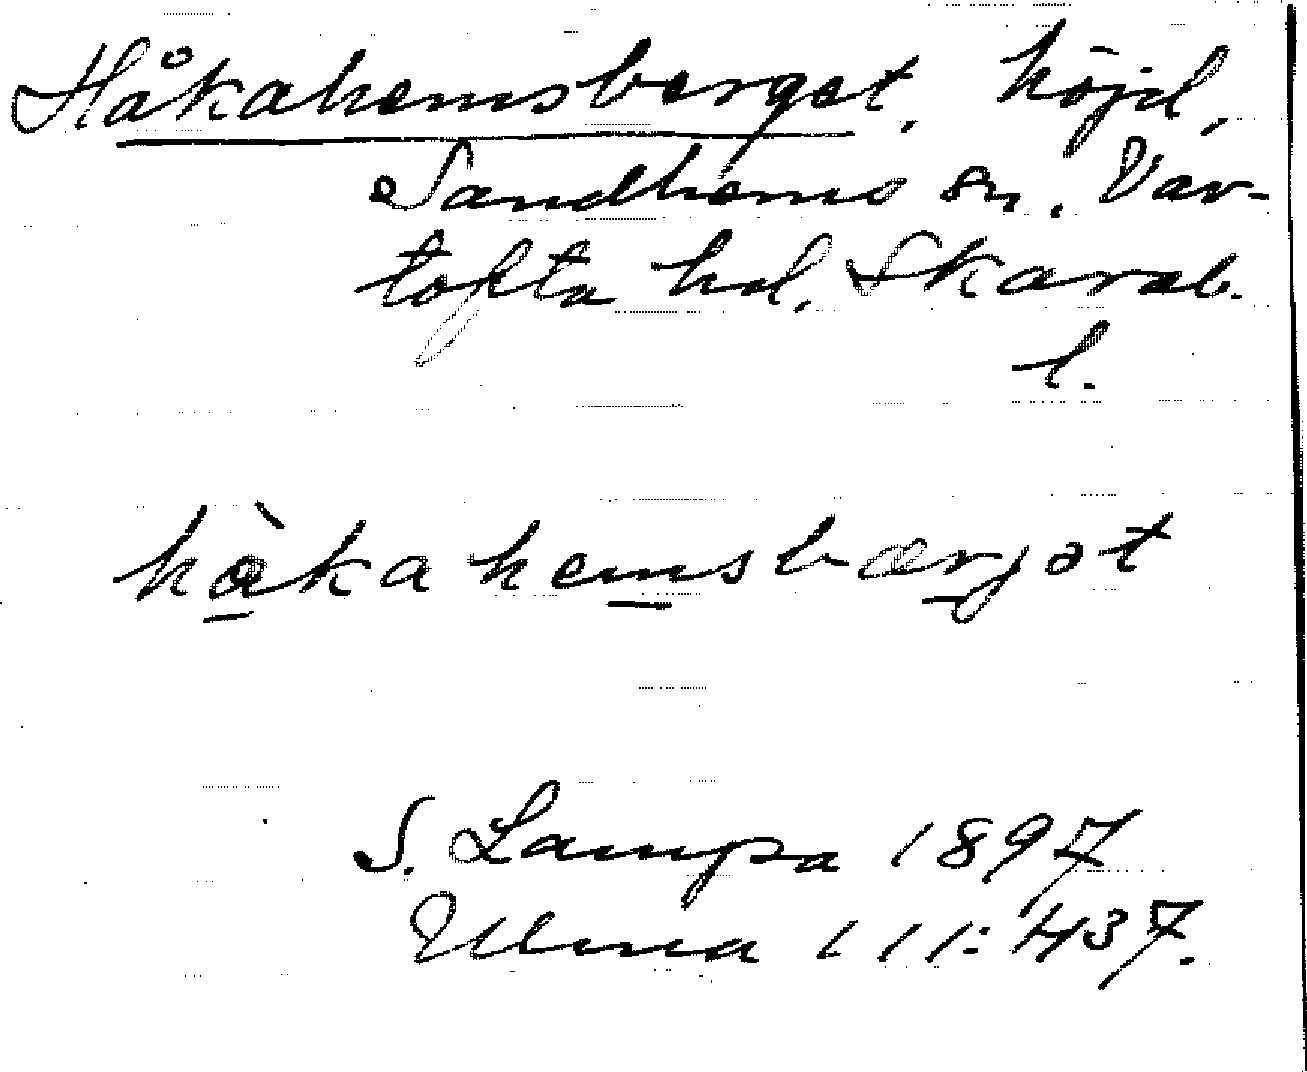 Håkahemsberget, höjd,
Sandhems sn, Var-
tofta hd, Skarab.
l.
hàka hemsbærjət
S. Lampa 1897
Ulma 111:437.